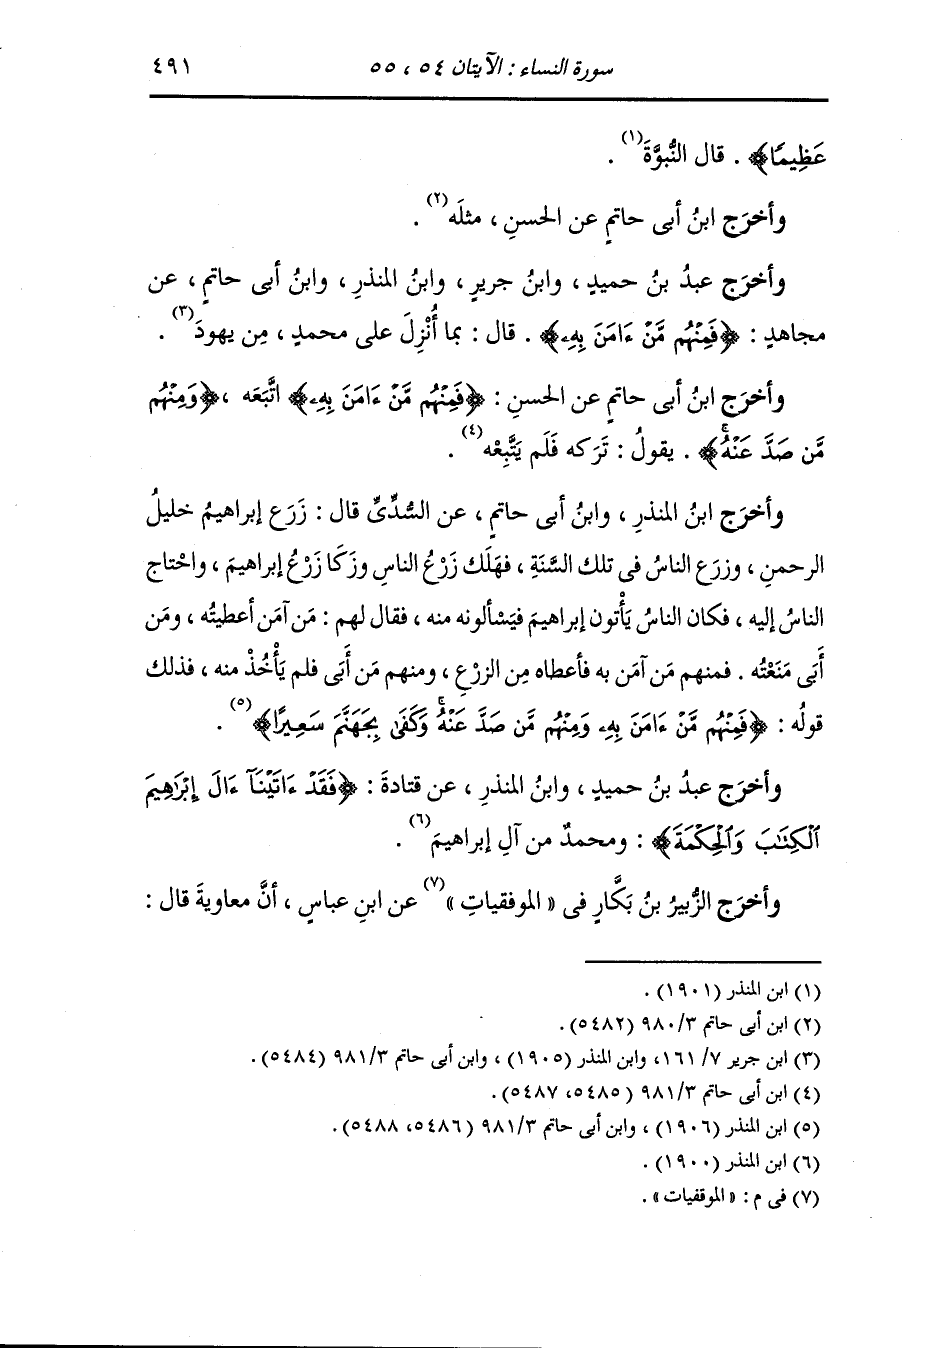 سورة النساء : الآيتان ٥٤ ، ٥٥ ٤٩١
عَظِيمًا﴾ . قال النُّبوَّةَ(١) .
وأخرَج ابنُ أبى حاتمٍ عن الحسنِ ، مثلَه(٢) .
وأخرَج عبدُ بنُ حميدٍ ، وابنُ جريرٍ ، وابنُ المنذرِ ، وابنُ أبى حاتمٍ ، عن
مجاهدٍ : ﴿فَمِنْهُم مَّنْ ءَامَنَ بِهِۦ﴾ . قال : بما أُنْزِلَ على محمدٍ ، مِن يهودَ(٣) .
وأخرَج ابنُ أبى حاتمٍ عن الحسنِ : ﴿فَمِنْهُم مَّنْ ءَامَنَ بِهِۦ﴾ اتَّبَعَه ، ﴿وَمِنْهُم
مَّن صَدَّ عَنْهُۚ﴾ . يقولُ : تَرَكه فَلَم يَتَّبِعْه(٤) .
وأخرَج ابنُ المنذرِ ، وابنُ أبى حاتمٍ ، عن السُّدِّىِّ قال : زَرَع إبراهيمُ خليلُ
الرحمنِ ، وزرَع الناسُ فى تلك السَّنَةِ ، فهَلَك زَرْعُ الناسِ وزَكَا زَرْعُ إبراهيمَ ، واحْتاج
الناسُ إليه ، فكان الناسُ يَأْتون إبراهيمَ فيَسْألونه منه ، فقال لهم : مَن آمَن أعطيتُه ، ومَن
أَبَى مَنَعْتُه . فمنهم مَن آمَن به فأعطاه مِن الزرْعِ ، ومنهم مَن أَبَى فلم يَأْخُذْ منه ، فذلك
قولُه : ﴿فَمِنْهُم مَّنْ ءَامَنَ بِهِۦ وَمِنْهُم مَّن صَدَّ عَنْهُۚ وَكَفَىٰ بِجَهَنَّمَ سَعِيرًا﴾(٥) .
وأخرَج عبدُ بنُ حميدٍ ، وابنُ المنذرِ ، عن قتادةَ : ﴿فَقَدْ ءَاتَيْنَآ ءَالَ إِبْرَٰهِيمَ
ٱلْكِتَٰبَ وَٱلْحِكْمَةَ﴾ : ومحمدٌ من آلِ إبراهيمَ(٦) .
وأخرَج الزُّبيرُ بنُ بَكَّارٍ فى « الموفقياتِ »(٧) عن ابنِ عباسٍ ، أنَّ معاويةَ قال :
(١) ابن المنذر (١٩٠١) .
(٢) ابن أبى حاتم ٩٨٠/٣ (٥٤٨٢).
(٣) ابن جرير ٧/ ١٦١، وابن المنذر (١٩٠٥) ، وابن أبى حاتم ٩٨١/٣ (٥٤٨٤).
(٤) ابن أبى حاتم ٩٨١/٣ (٥٤٨٥، ٥٤٨٧).
(٥) ابن المنذر (١٩٠٦) ، وابن أبى حاتم ٩٨١/٣ (٥٤٨٦، ٥٤٨٨).
(٦) ابن المنذر (١٩٠٠) .
(٧) فى م : « الموقفيات » .